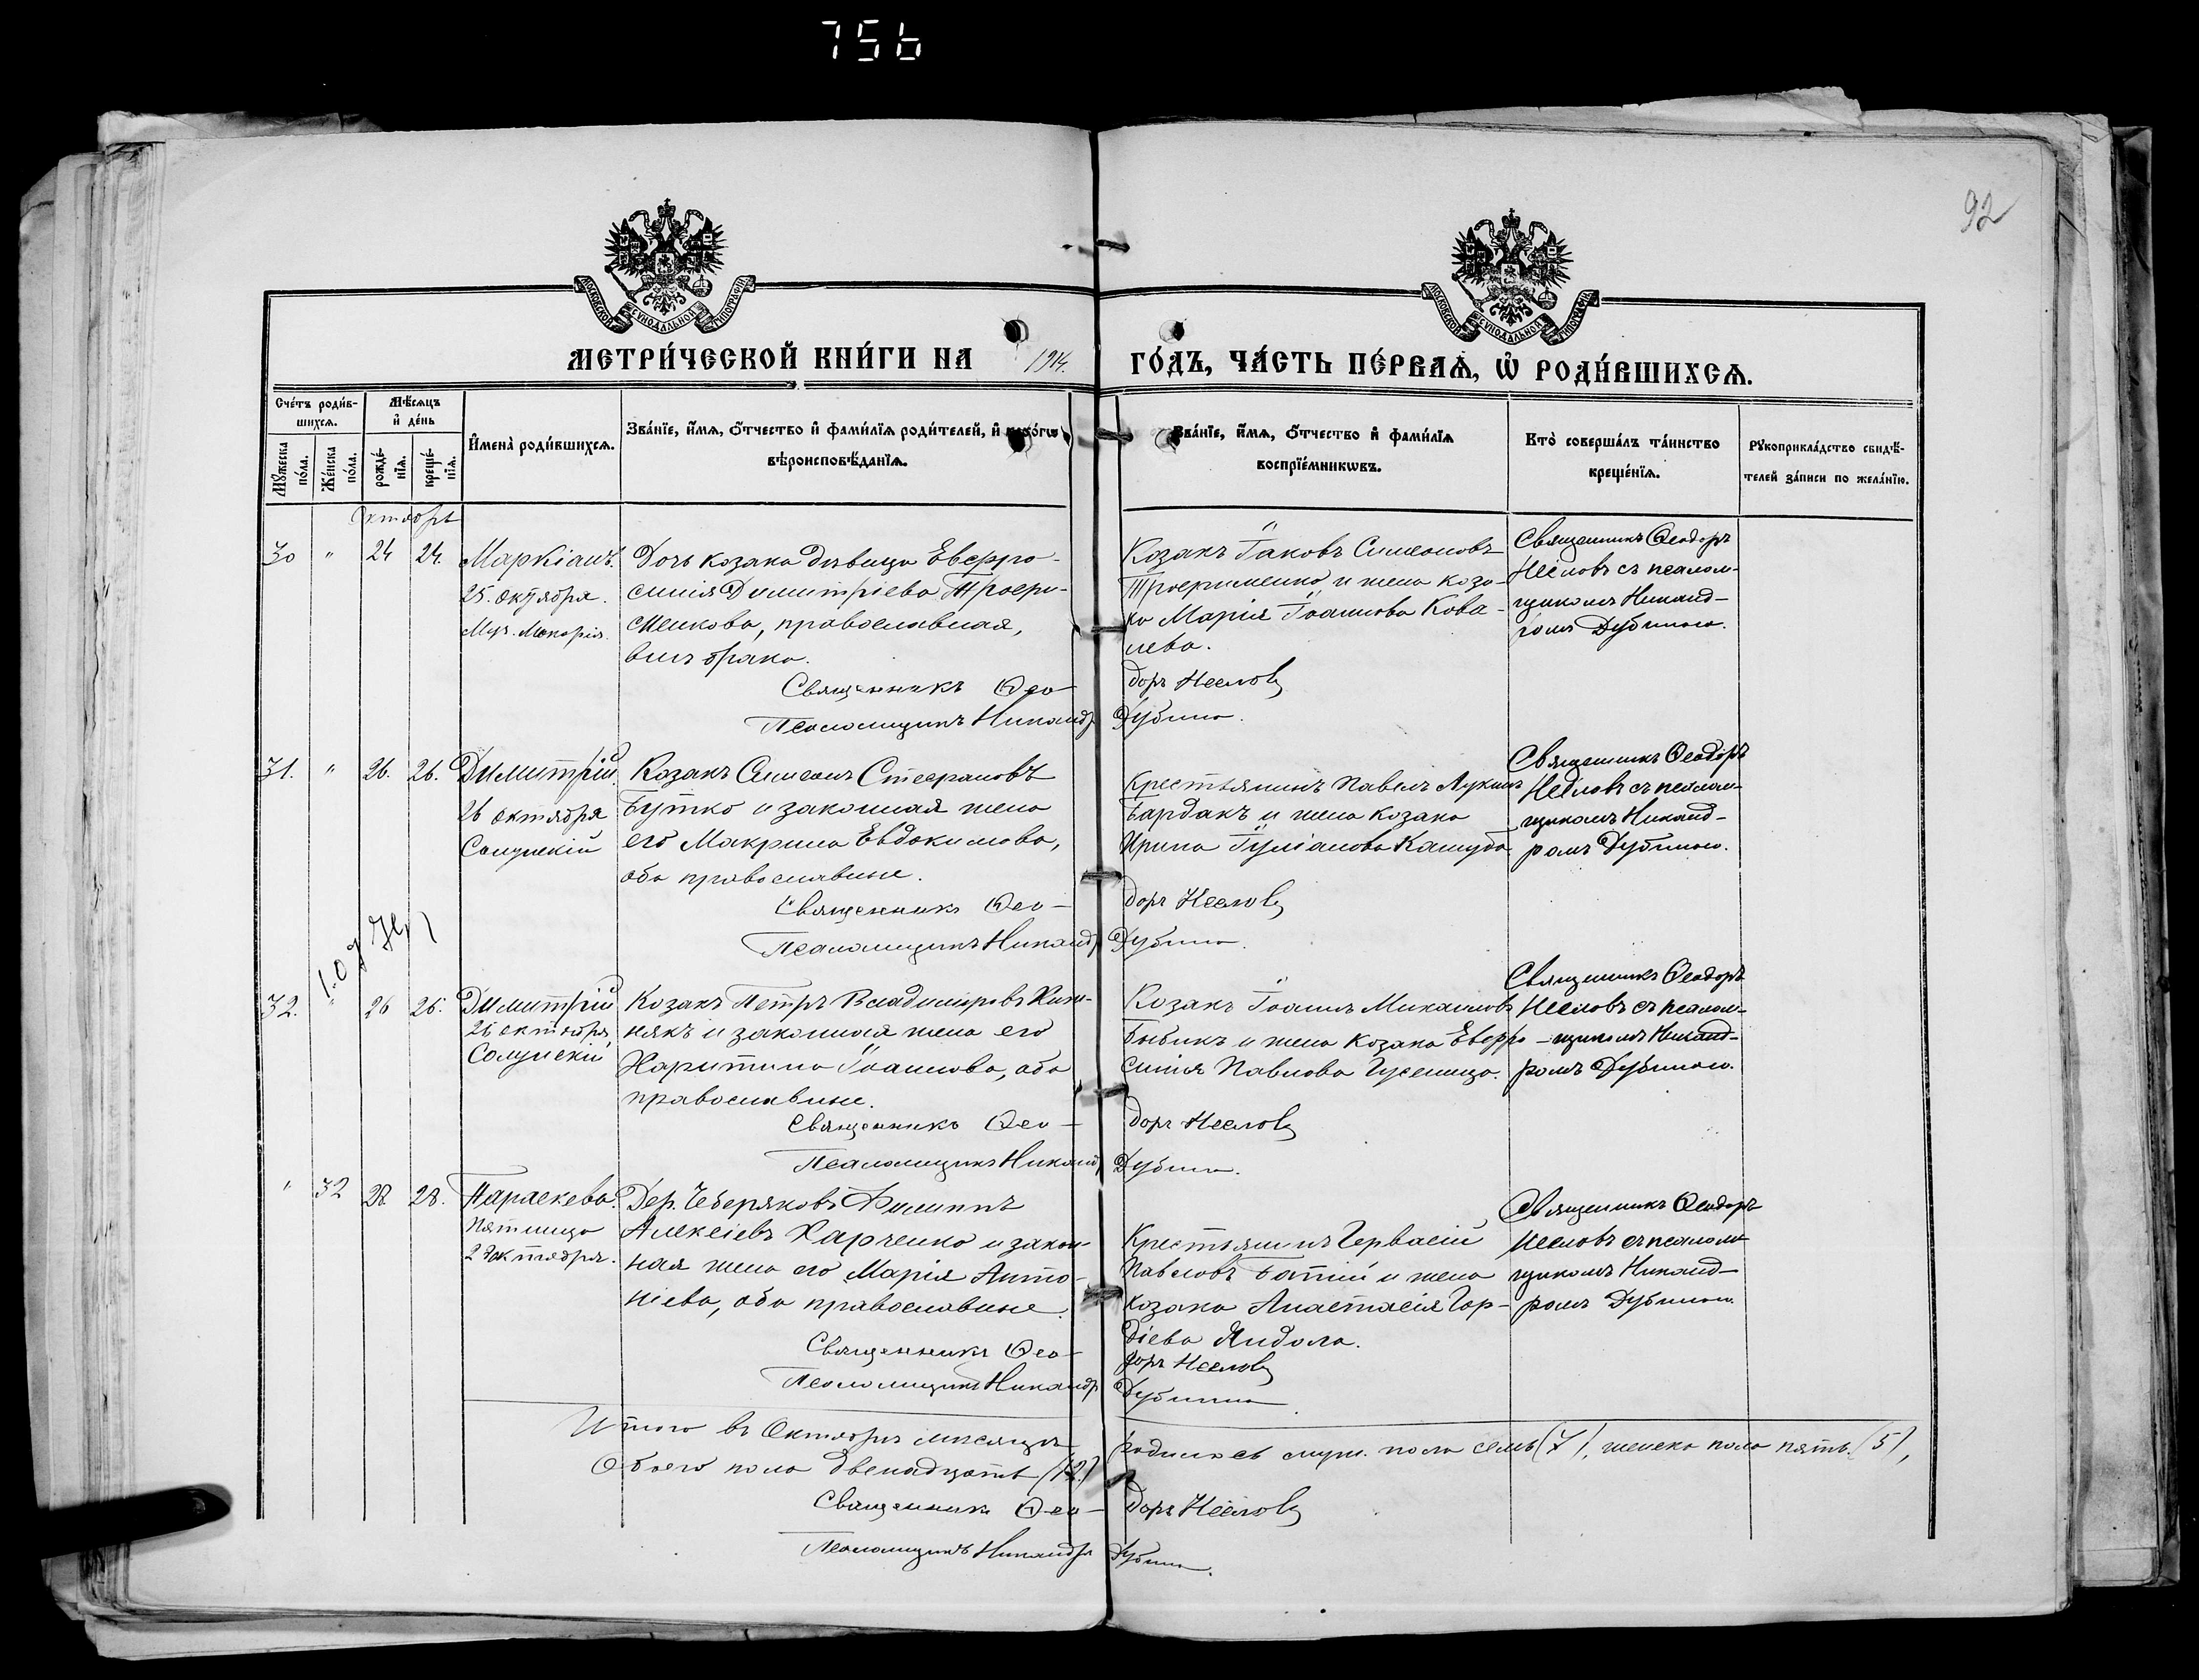 756
92
МЕТРИ́ЧЕСКОЙ КНИ́ГИ НА 1914. ГО́ДЪ, ЧА́СТЬ ПЕ́РВАѦ, Ѡ҆ РОДИ́ВШИХСѦ.
Сче́тъ роди́в-
шихсѧ.
Мѣ́сѧцъ
и҆ де́нь
Мꙋ́жеска
по́ла.
Же́нска
по́ла.
рожде́-
нїѧ.
креще́-
нїѧ.
И҆мена̀ роди́вшихсѧ.
Зва́нїе, и҆́мѧ, ѻ҆́тчество и҆ фами́лїѧ роди́телей, и҆ како́гѡ
вѣроисповѣ́данїѧ.
Зва́нїе, и҆́мѧ, ѻ҆́тчество и҆ фами́лїѧ
воспрїе́мникѡвъ.
Кто̀ соверша́лъ та́инство
креще́нїѧ.
Рꙋкоприкла́дство свидѣ́-
телей за́писи по жела́нїю.
Октябрь
30 " 24 24.
Маркіанъ.
25. октября.
Муч.
Дочь козака дѣвица Евфро-
синія Димитріева Трофи-
менкова, православная,
внѣ брака.
Священникъ Ѳео-
Псаломщикъ Никандръ
Козакъ Іаковъ Симеоновъ
Трофименко и жена коза-
ка Марія Іоаннова Кова-
лева.
доръ Нееловъ
Дубина.
Священникъ Ѳеодоръ
Нееловъ съ псалом-
щикомъ Никанд-
ромъ Дубиною.
31. " 26. 26.
Димитрій.
26 октября
Солунскій
Козакъ Симеонъ Стефановъ
Бутко и законная жена
его Макрина Евдокимова,
оба православные.
Священникъ Ѳео-
Псаломщикъ Никандръ
Крестьянинъ Павелъ Лукинъ
Бардакъ и жена козака
Ирина Іуліанова Кашуба
доръ Нееловъ
Дубина.
Священникъ Ѳеодоръ
Нееловъ съ псалом-
щикомъ Никанд-
ромъ Дубиною.
32. " 26 26.
Димитрій
26 октября,
Солунскій
Козакъ Петръ Владиміровъ Хиж-
някъ и законная жена его
Харитина Іоаннова, оба
православные.
Священникъ Ѳео-
Псаломщикъ Никандръ
Козакъ Іоаннъ Михаиловъ
Бибикъ и жена козака Евфро-
синія Павлова Гусеница.
доръ Нееловъ
Дубина.
Священникъ Ѳеодоръ
Нееловъ съ псалом-
щикомъ Никанд-
ромъ Дубиною.
" 32 28. 28.
Параскева.
Пятница
28 октября.
Дер. Чеберяковъ Филиппъ
Алексіевъ Харченко и закон-
ная жена его Марія Анто-
ніева, оба православные.
Священникъ Ѳео-
Псаломщикъ Никандръ
Крестьянинъ Гервасій
Павловъ Батій и жена
козака Анастасія Гор-
діева Яндола.
доръ Нееловъ
Дубина
Священникъ Ѳеодоръ
Нееловъ съ псалом-
щикомъ Никанд-
ромъ Дубиною.
Итого въ Октябрѣ мѣсяцѣ родилось муж. пола семь (7), женска пола пять (5),
Обоего пола двенадцать (12.)
Священникъ Ѳео- доръ Нееловъ
Псаломщикъ Никандръ Дубина.